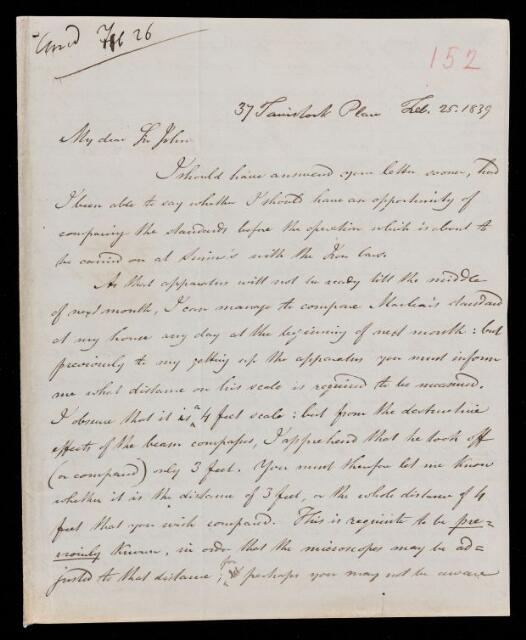 Ansd Feb 26
152
37 Tavistock Place Feb. 25. 1839
My dear Sir John
I should have answered your letter sooner, had
I been able to say whether I should have an opportunity of
comparing the standards before the operation which is about to
be carried on at Simms's with the Iron bars.
As that apparatus will not be ready till the middle
of next month, I can manage to compare Maclear's standard
at my house any day at the beginning of next month: but
previously to my getting up the apparatus you must inform
me what distance on his scale is required to be measured.
I observe that it is a 4 feet scale: but from the destructive
effects of the beam compasses, I apprehend that he took off
(or compared) only 3 feet. You must therefore let me know
whether it is the distance of 3 feet, or the whole distance of 4
feet that you wish compared. This is requisite to be pre=
viously known, in order that the microscopes may be ad=
justed to that distance; perhaps you may not be aware